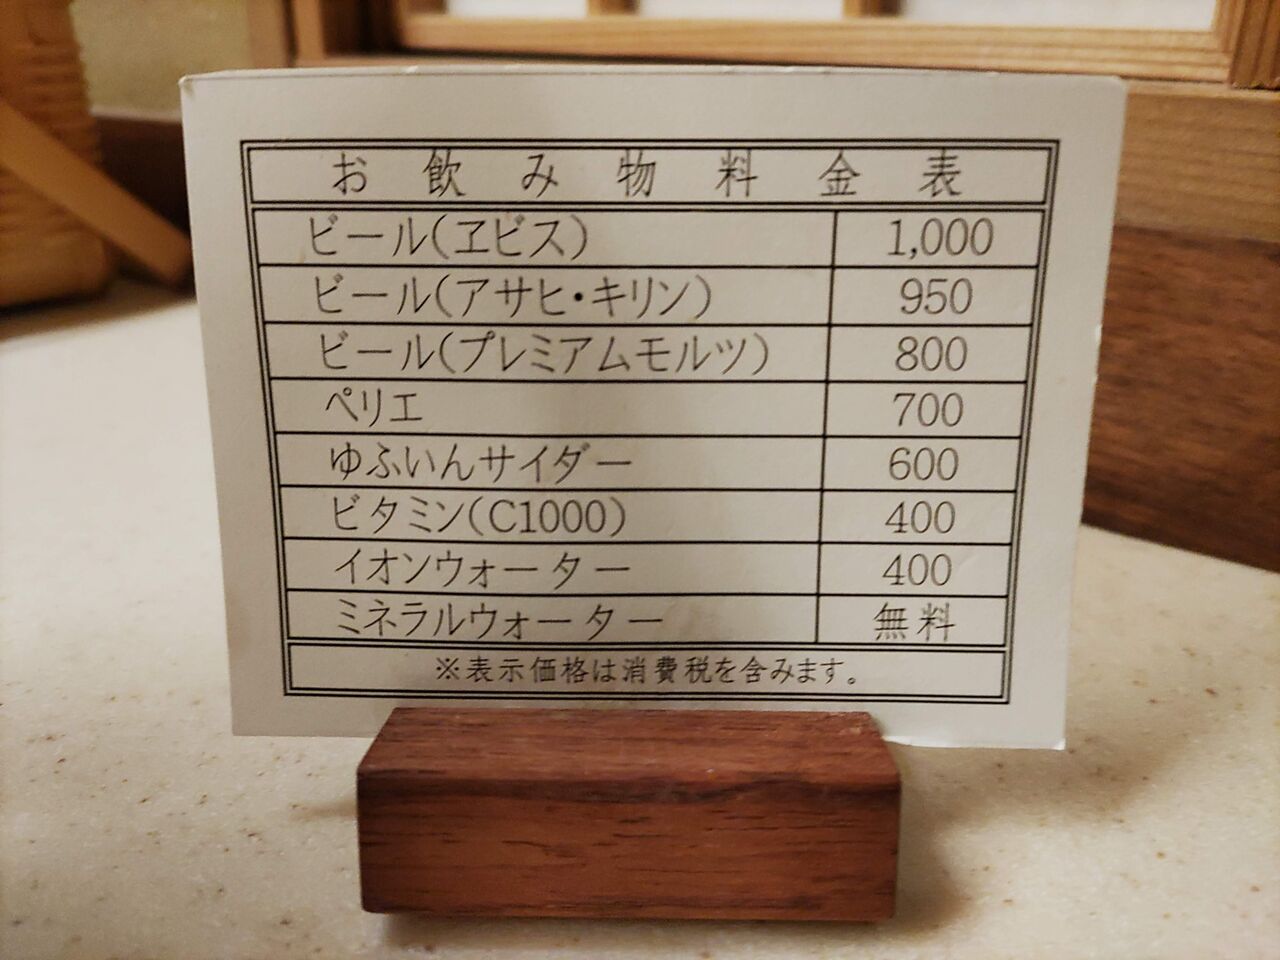 お飲み物料金表
ビール(ヱビス) 1,000
ビール(アサヒ・キリン) 950
ビール(プレミアムモルツ) 800
ペリエ 700
ゆふいんサイダー 600
ビタミン(C1000) 400
イオンウォーター 400
ミネラルウォーター 無料
※表示価格は消費税を含みます。